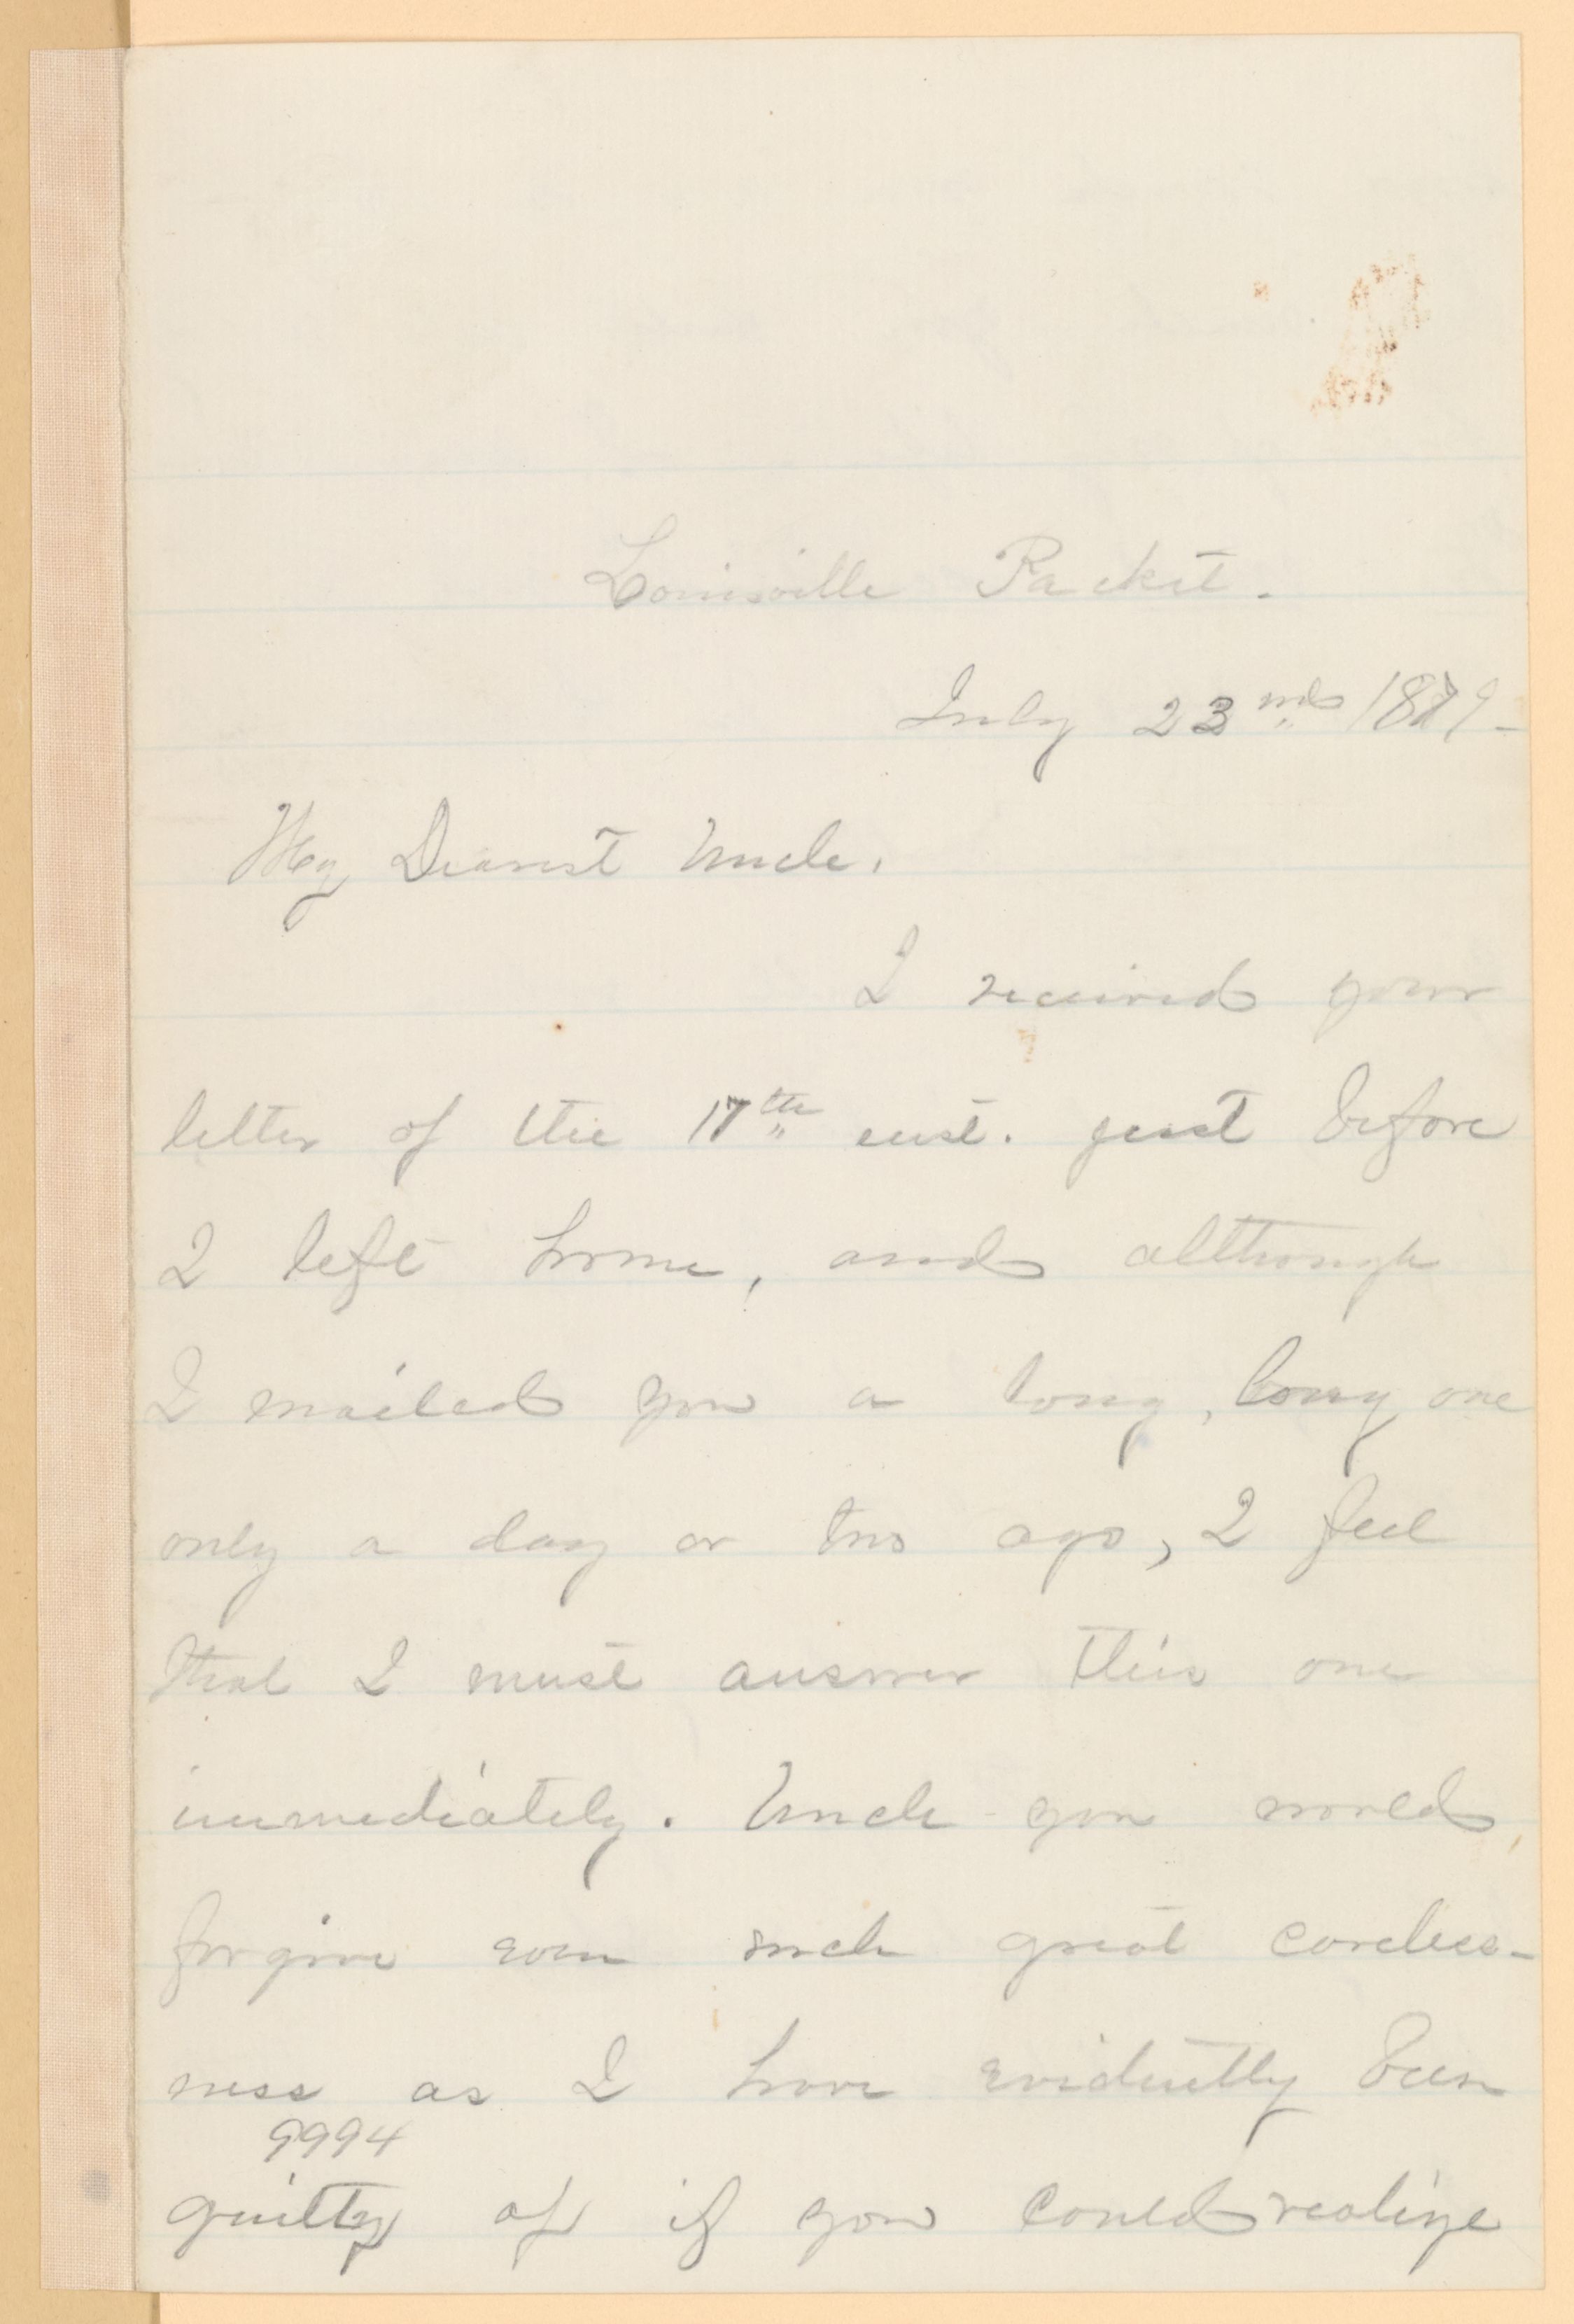 Louisville Packet.
July 23nd 1879-
My Dearest Uncle.
I received your
letter of the 17th inst. just before
I left home, and although
I mailed you a long, long one
only a day or two ago, I feel
that I must answer this one
immediately. Uncle you would
forgive even such great careless-
ness as I have evidently been
9994
guilty of if you could realize